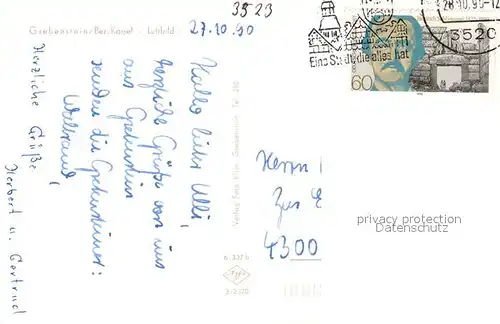 3523
Grebenstein/Bez. Kassel - Luftbild
27.10.90
Hallo lieber Ulli,
herzliche Grüße von uns
aus Grebenstein
senden die Grebensteiner:
Waltraud,
Herbert u. Gertrud
Herzliche Grüße
Verlag Foto
Grebenstein, Tel. 210
3-2270
28.10.90-12
3520
Eine Stadt, die alles hat
60
Herrn
Zur
4300
privacy protection
Datenschutz